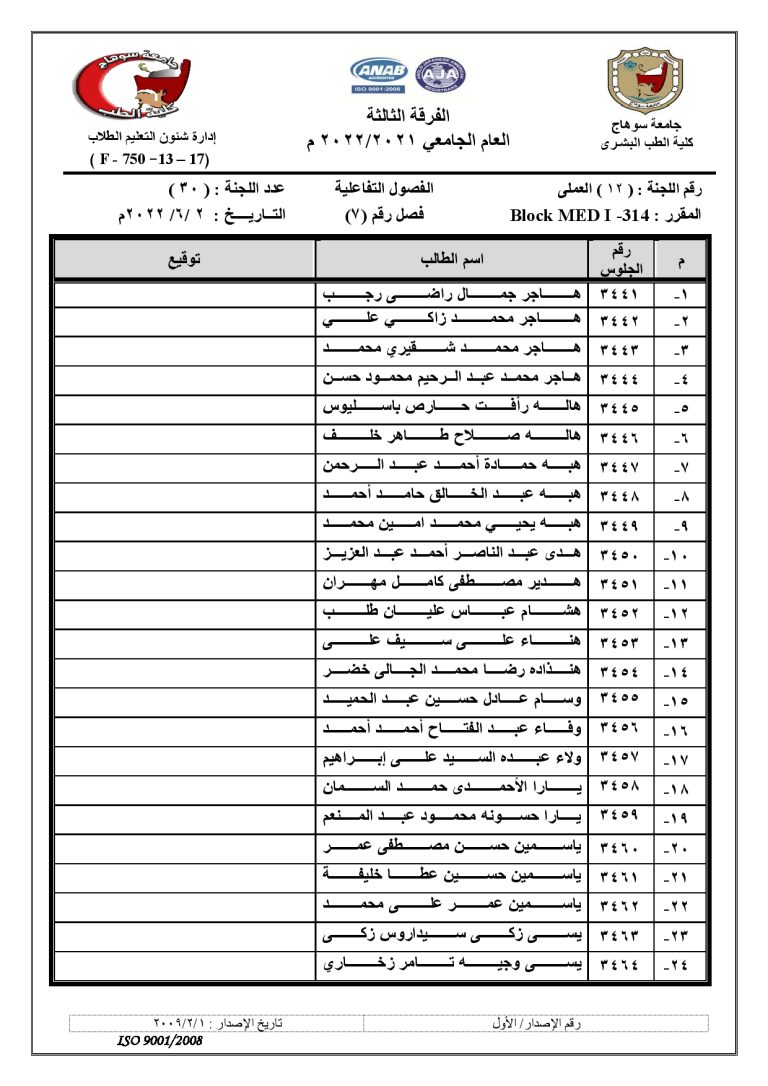 جامعة سوهاج
كلية الطب
ANAB
ACCREDITED
ISO 9001:2008
AJA
جامعة سوهاج
كلية الطب البشرى
الفرقة الثالثة
العام الجامعي ٢٠٢٢/٢٠٢١ م
إدارة شئون التعليم الطلاب
( F - 750 –13 – 17)
رقم اللجنة : ( ١٢ ) العملى الفصول التفاعلية عدد اللجنة : ( ٣٠ )
المقرر : Block MED I -314 فصل رقم (٧) التــاريــخ : ٢ /٦/ ٢٠٢٢م
م رقم الجلوس اسم الطالب توقيع
١- ٣٤٤١ هـاجر جمـال راضـى رجـب
٢- ٣٤٤٢ هـاجر محمـد زاكـي علـي
٣- ٣٤٤٣ هـاجر محمـد شـقيري محمـد
٤- ٣٤٤٤ هـاجر محمـد عبـد الـرحيم محمـود حسـن
٥- ٣٤٤٥ هالـه رأفـت حـارص باسـليوس
٦- ٣٤٤٦ هالـه صـلاح طـاهر خلـف
٧- ٣٤٤٧ هبـه حمـادة أحمـد عبـد الـرحمن
٨- ٣٤٤٨ هبـه عبـد الخـالق حامـد أحمـد
٩- ٣٤٤٩ هبـه يحيـي محمـد امـين محمـد
١٠- ٣٤٥٠ هـدى عبـد الناصـر أحمـد عبـد العزيـز
١١- ٣٤٥١ هـدير مصـطفى كامـل مهـران
١٢- ٣٤٥٢ هشـام عبـاس عليـان طلـب
١٣- ٣٤٥٣ هنـاء علـى سـيف علـى
١٤- ٣٤٥٤ هنـذاده رضـا محمـد الجـالى خضـر
١٥- ٣٤٥٥ وسـام عـادل حسـين عبـد الحميـد
١٦- ٣٤٥٦ وفـاء عبـد الفتـاح أحمـد أحمـد
١٧- ٣٤٥٧ ولاء عبـده السـيد علـى إبـراهيم
١٨- ٣٤٥٨ يـارا الأحمـدى حمـد السـمان
١٩- ٣٤٥٩ يـارا حسـونه محمـود عبـد المـنعم
٢٠- ٣٤٦٠ ياسـمين حسـن مصـطفى عمـر
٢١- ٣٤٦١ ياسـمين حسـين عطـا خليفـة
٢٢- ٣٤٦٢ ياسـمين عمـر علـى محمـد
٢٣- ٣٤٦٣ يسـى زكـى سـيداروس زكـى
٢٤- ٣٤٦٤ يسـى وجيـه تـامر زخـاري
رقم الإصدار/ الأول تاريخ الإصدار : ٢٠٠٩/٢/١
ISO 9001/2008